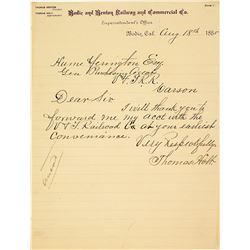 Bodie and Benton Railway and Commercial Co.
Superintendent's Office
Bodie, Cal. Aug 18th 188
Hume Yerington Esq
Gen
V&T.R.R.
Carson
Dear Sir
I will thank you to
forward me my acct with the
V&T. Railroad Co at your earliest
Convenience.
Very Respectfully
Thomas Holt